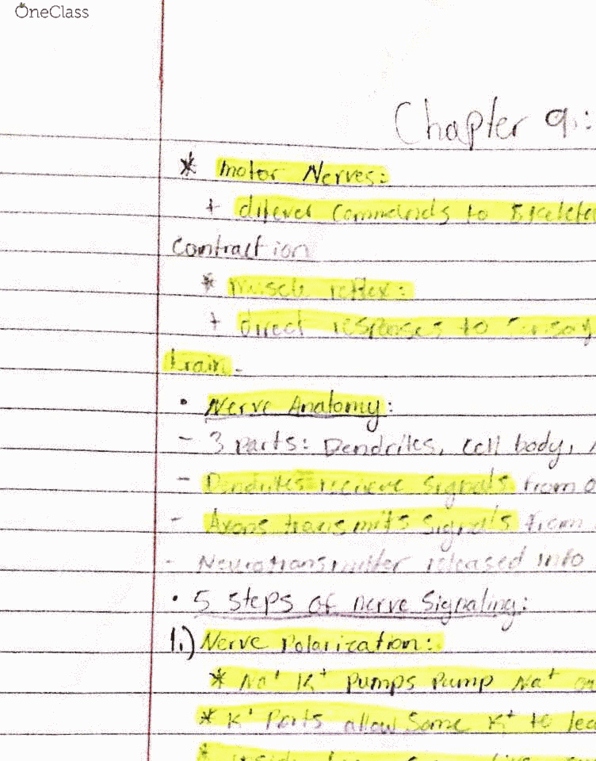 OneClass
Chapter 9:
* Motor Nerves:
+ commands to
Contraction
* Muscle reflex:
+ direct responses to

• Nerve Anatomy:
- 3 parts: Dendrites, Cell body,
- Dendrites recieve Signals from
- Axons transmits Signals from
- Neurotransmitter released into
• 5 Steps of nerve Signaling:
1.) Nerve Polarization:
* Na+ K+ Pumps Pump Na+
* K+ Ports allow Some K+ to